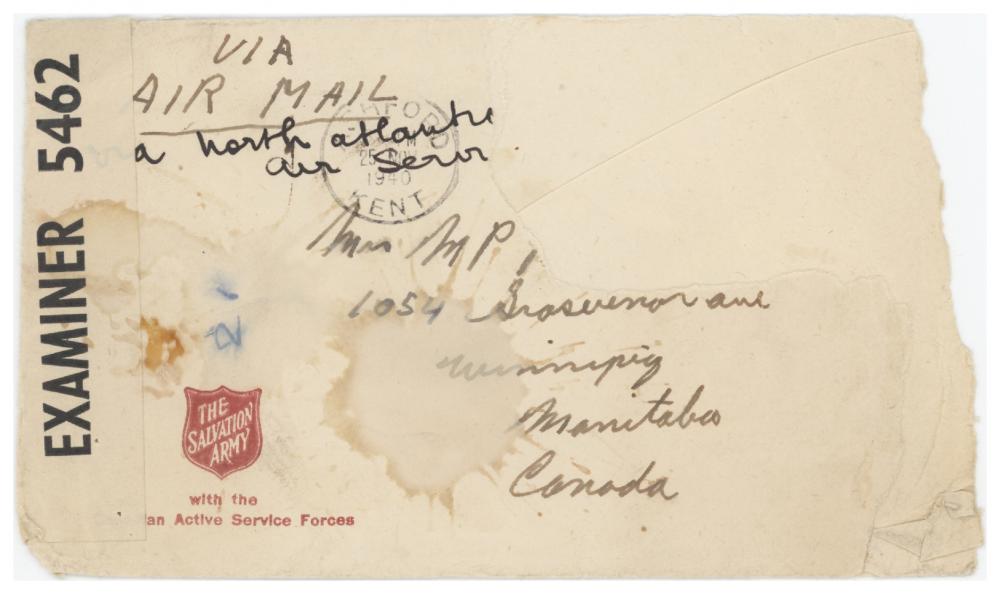 EXAMINER 5462
VIA
AIR MAIL
a north atlantic
air Serv
HFORD
25 NOV
1940
KENT
Mrs M P,
1054 Grosvenor ave
Winnipeg
Manitoba
Canada
THE
SALVATION
ARMY
with the
an Active Service Forces